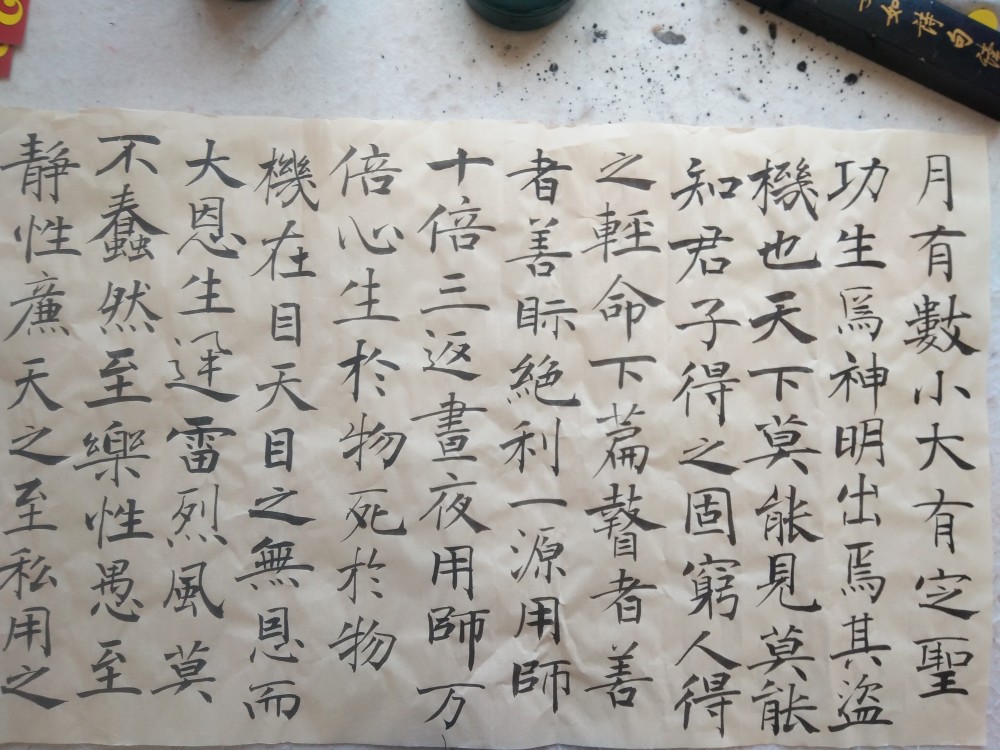 月有數小大有定聖
功生焉神明出焉其盜
機也天下莫能見莫能
知君子得之固窮人得
之輕命下篇瞽者善
者善眎絕利一源用師
十倍三返晝夜用師万
倍心生於物死於物
機在目天目之無恩而
大恩生迅雷烈風莫
不蠢然至樂性愚至
靜性廉天之至私用之